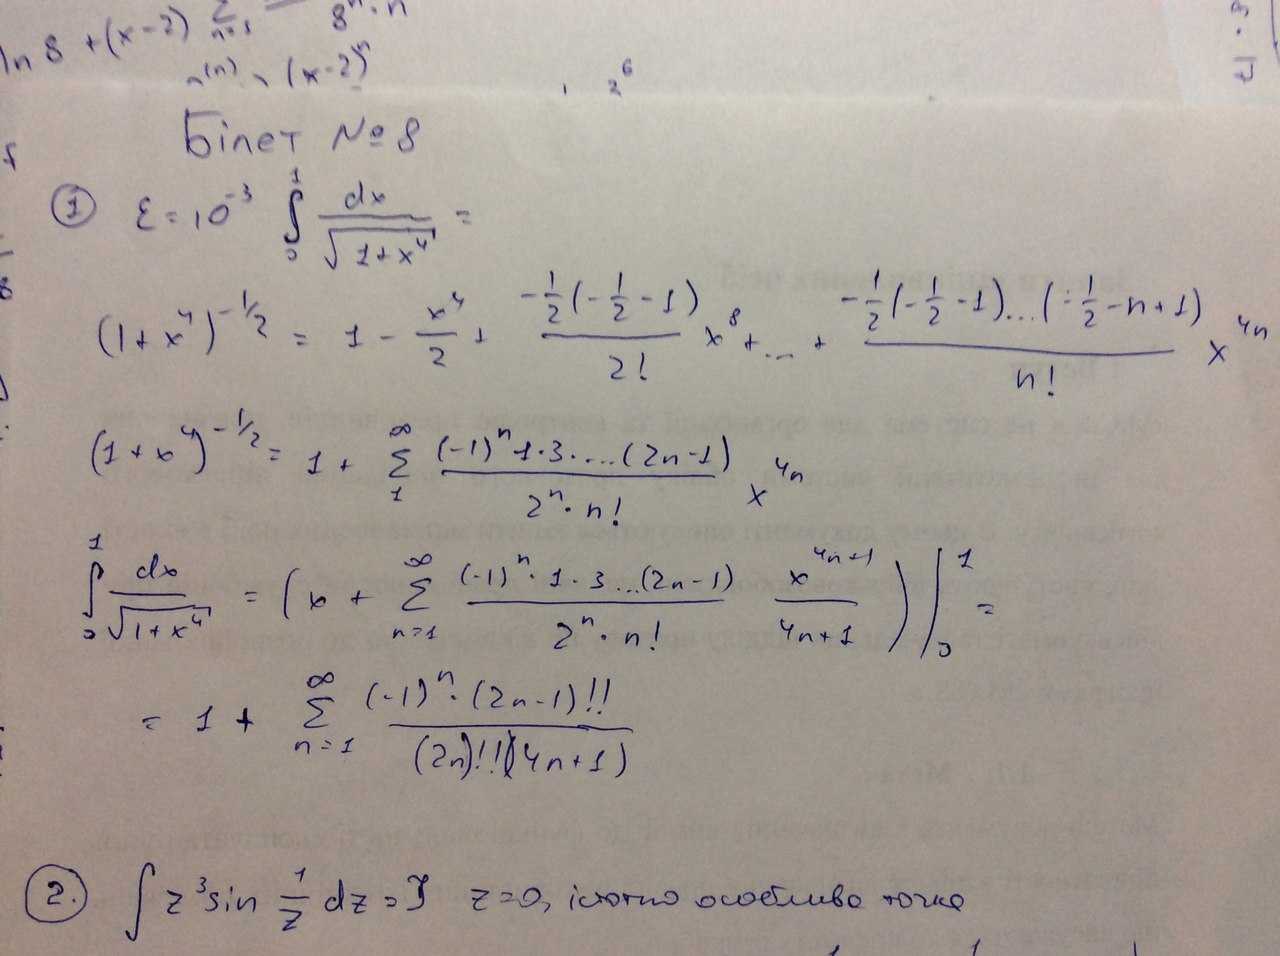 ln 8 + (x-2) Σ n=1 8ⁿ·n
(x-2)ⁿ
Білет №8
① ε = 10⁻³ ∫₀¹ dx/√(1+x⁴) =
(1+x⁴)^(-1/2) = 1 - x⁴/2 + (-1/2(-1/2-1))/2! x⁸ + ... + (-1/2(-1/2-1)...(-1/2-n+1))/n! x⁴ⁿ
(1+x⁴)^(-1/2) = 1 + Σ₁^∞ ((-1)ⁿ 1·3·...(2n-1))/(2ⁿ·n!) x⁴ⁿ
∫₀¹ dx/√(1+x⁴) = (x + Σ_(n=1)^∞ ((-1)ⁿ·1·3...(2n-1))/(2ⁿ·n!) x^(4n+1)/(4n+1))|₀¹ =
= 1 + Σ_(n=1)^∞ ((-1)ⁿ·(2n-1)!!)/((2n)!!(4n+1))
2. ∫ z³ sin 1/z dz = I z=0, істотно особлива точка